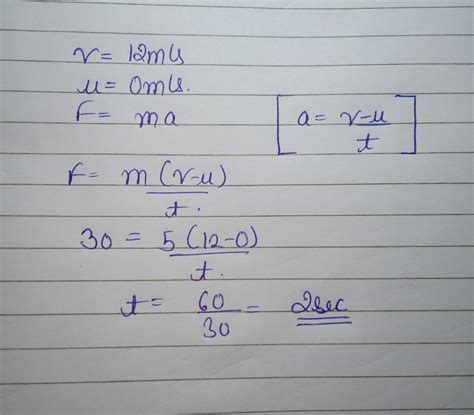 v = 12m/s
u = 0m/s.
F = ma
[a = v-u/t]
F = m(v-u)/t.
30 = 5(12-0)/t.
t = 60/30 = 2sec